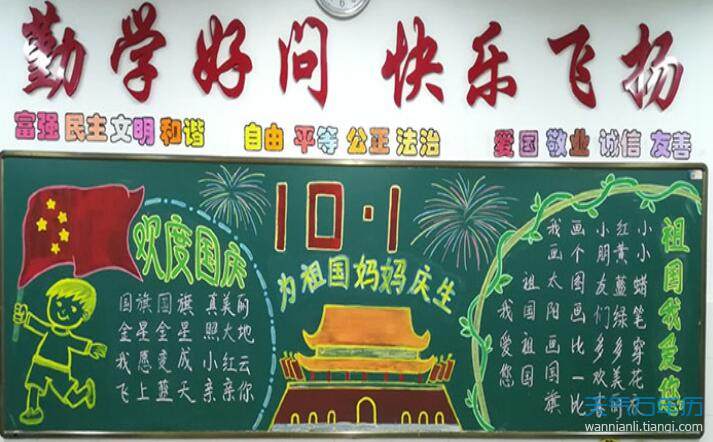 勤学好问 快乐飞扬
富强 民主 文明 和谐 自由 平等 公正 法治 爱国 敬业 诚信 友善
欢度国庆
国旗国旗真美丽
金星金星照大地
我愿变成小红云
飞上蓝天亲亲你
10·1
为祖国妈妈庆生
祖国我爱你
小小蜡笔穿花
红黄蓝绿多美
小朋友们多欢
画个图画比一比
我画太阳画国旗
祖国祖国
我爱您
天气万年历
wannianli.tianqi.com